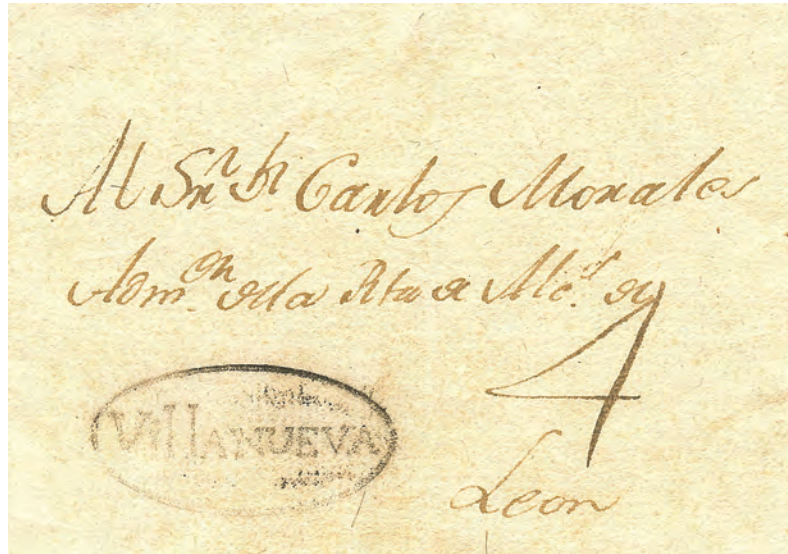 Al Sn.r Dn Carlos Morales
Adm.on della Rta de Alc.s de
4
VillANUEVA
Leon